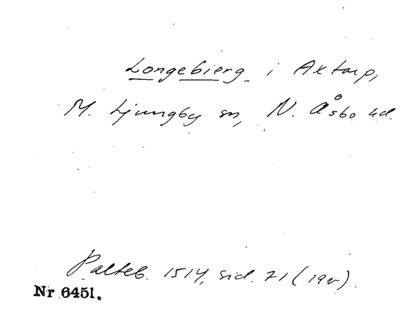 Longebierg i Axtorp,
M. Ljungby sn, N. Åsbo hd.
Palteb. 1514, sid. 71 (19v).
Nr 6451.